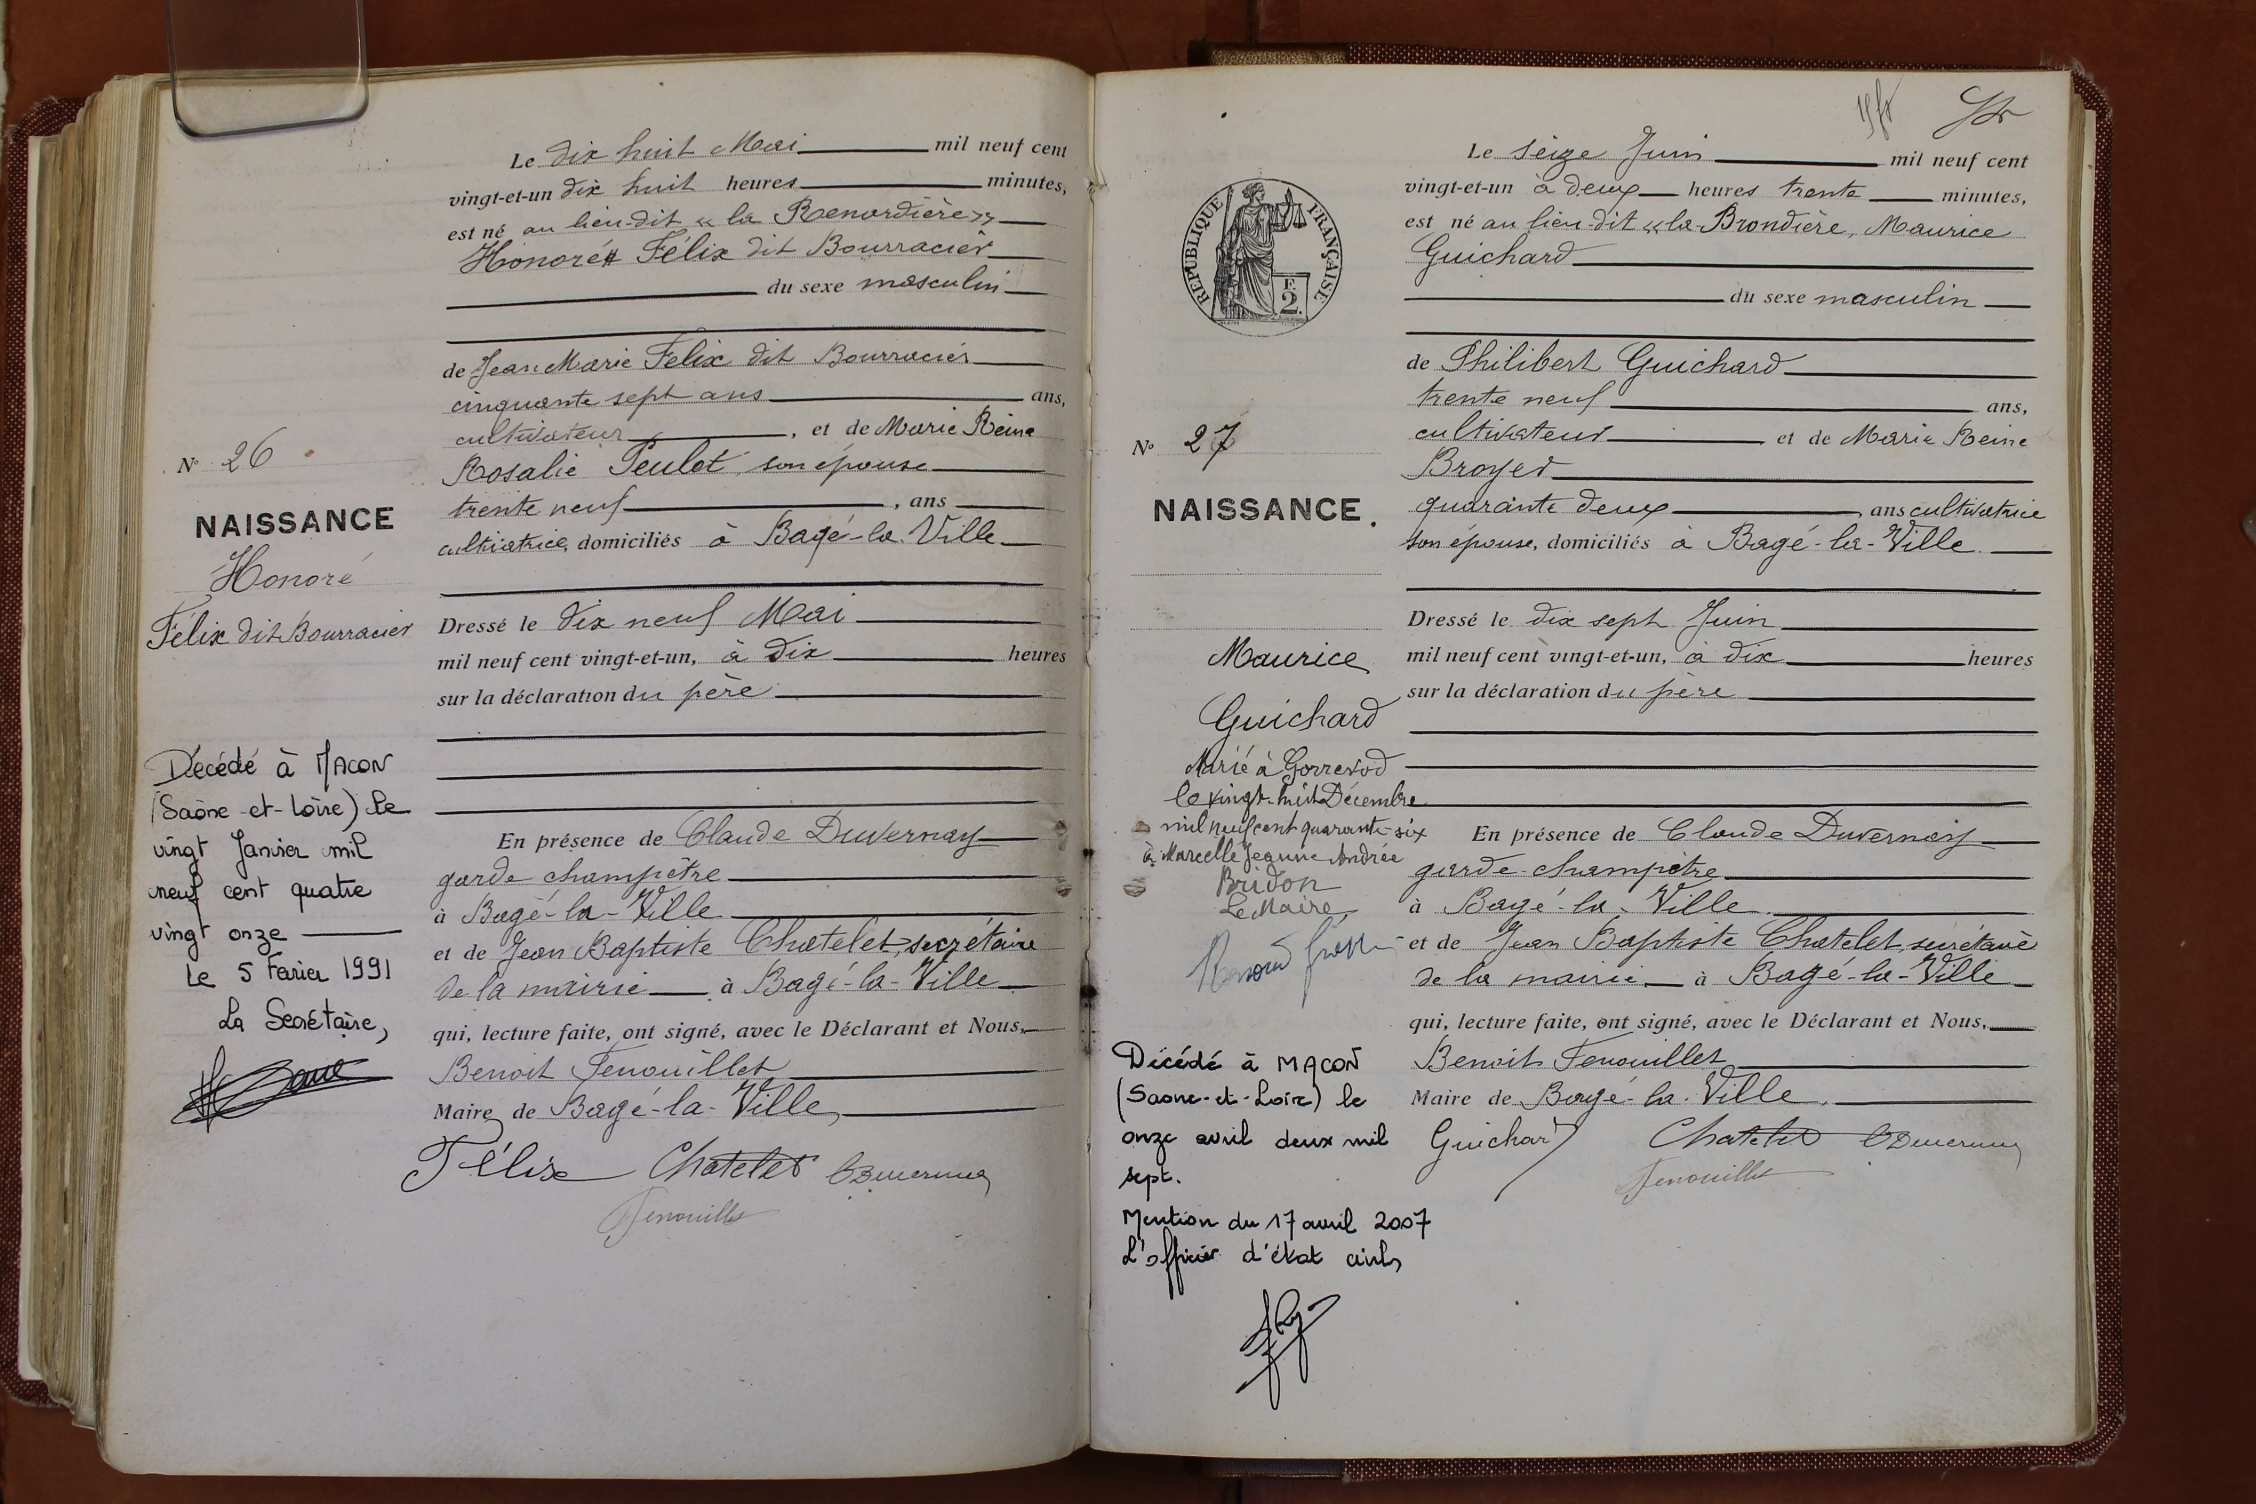 Le dix huit Mai mil neuf cent
vingt-et-un dix huit heures minutes,
est né au lieu-dit « la Renardière »
Honoré Félix dit Bourracier
du sexe masculin
de Jean Marie Félix dit Bourracier
cinquante sept ans ans,
cultivateur, et de Marie Reine
Rosalie Peulet son épouse
trente neuf, ans
cultivatrice, domiciliés à Bagé-la-Ville
Dressé le dix neuf Mai
mil neuf cent vingt-et-un, à dix heures
sur la déclaration du père
En présence de Claude Duvernay
garde champêtre
à Bagé-la-Ville
et de Jean Baptiste Chatelet, secrétaire
de la mairie à Bagé-la-Ville
qui, lecture faite, ont signé, avec le Déclarant et Nous,
Benoit Fenouillet
Maire de Bagé-la-Ville
Félix Chatelet CDuvernay
Fenouillet
No 26
NAISSANCE
Honoré
Félix dit Bourracier
Décédé à MACON
(Saône-et-Loire) le
vingt Janvier mil
neuf cent quatre
vingt onze
Le 5 Février 1991
La Secrétaire,
Le seize Juin mil neuf cent
vingt-et-un à deux heures trente minutes,
est né au lieu-dit « la Brondière, Maurice
Guichard
du sexe masculin
de Philibert Guichard
trente neuf ans,
cultivateur et de Marie Reine
Broyer
quarante deux, ans cultivatrice
son épouse, domiciliés à Bagé-la-Ville
Dressé le dix sept Juin
mil neuf cent vingt-et-un, à dix heures
sur la déclaration du père
En présence de Claude Duvernay
garde-champêtre
à Bagé-la-Ville
et de Jean Baptiste Chatelet, secrétaire
de la mairie à Bagé-la-Ville
qui, lecture faite, ont signé, avec le Déclarant et Nous,
Benoit Fenouillet
Maire de Bagé-la-Ville
Guichard Chatelet CDuvernay
Fenouillet
RÉPUBLIQUE FRANÇAISE
F.
2.
No 27
NAISSANCE.
Maurice
Guichard
Marié à Gorrevod
le vingt-huit Décembre
mil neuf cent quarante-six
à Marcelle Jeanne Andrée
Bridon
Le Maire
Décédé à MACON
(Saone-et-Loire) le
onze avril deux mil
sept.
Mention du 17 avril 2007
L'officier d'état civil,